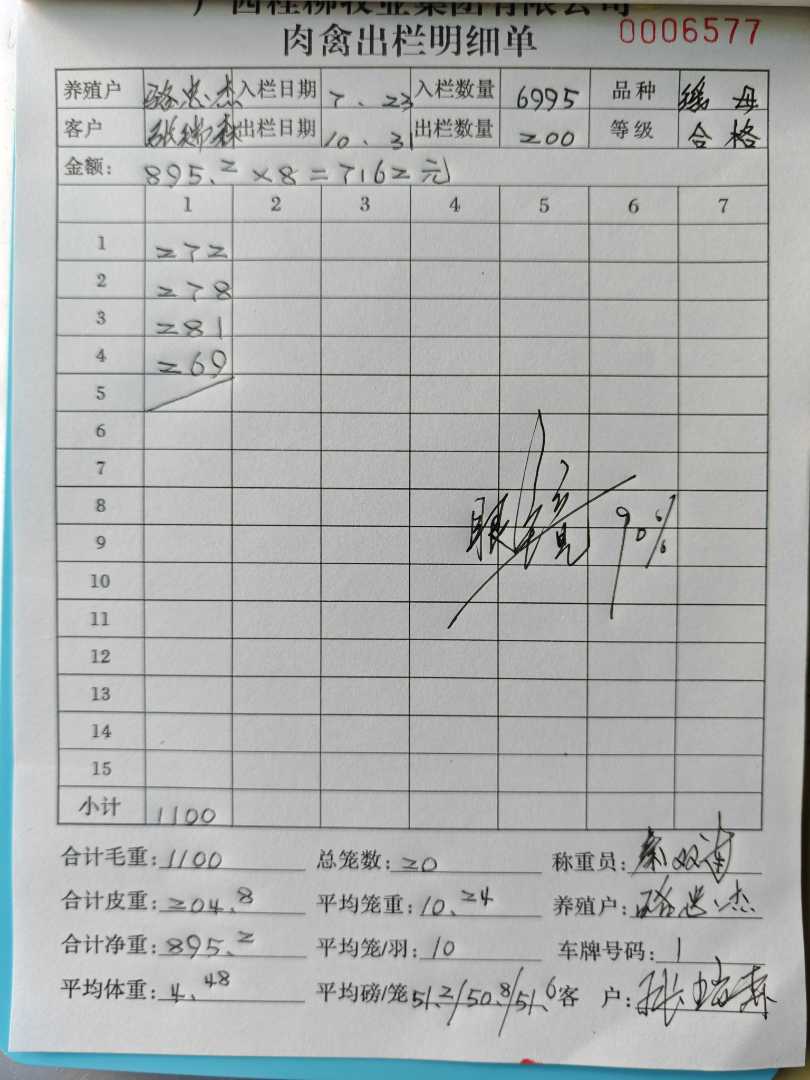 广西桂柳牧业集团有限公司
肉禽出栏明细单 0006577
养殖户 骆忠杰 入栏日期 7.23 入栏数量 6995 品种 母
客户 张瑞森 出栏日期 10.31 出栏数量 200 等级 合格
金额: 895.2×8=7162元
1 2 3 4 5 6 7
1 272
2 278
3 281
4 269
5
6
7
8
9
眼镜 90%
10
11
12
13
14
15
小计 1100
合计毛重: 1100 总笼数: 20 称重员: 秦双
合计皮重: 204.8 平均笼重: 10.24 养殖户: 骆忠杰
合计净重: 895.2 平均笼/羽: 10 车牌号码: 1
平均体重: 4.48 平均磅/笼 51.2/50.8/51.6 客 户: 张瑞森